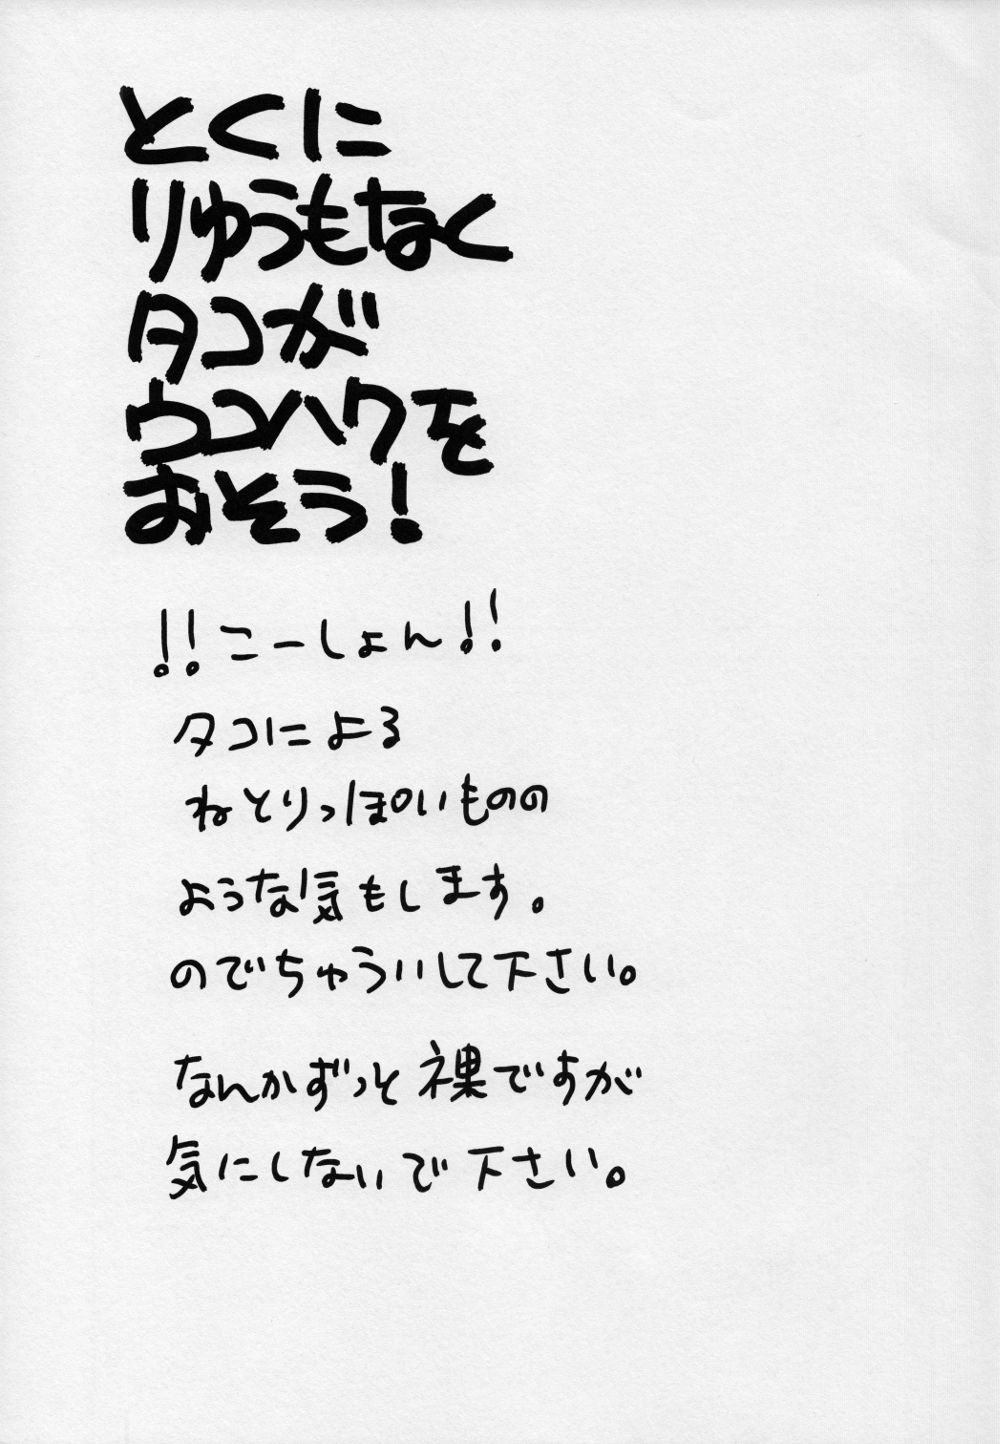 とくに
りゆうもなく
タコが
ウコハクを
おそう!
!!こーしょん!!
タコによる
ねとりっぽいものの
ような気もします。
のでちゅういして下さい。
なんかずっと裸ですが
気にしないで下さい。